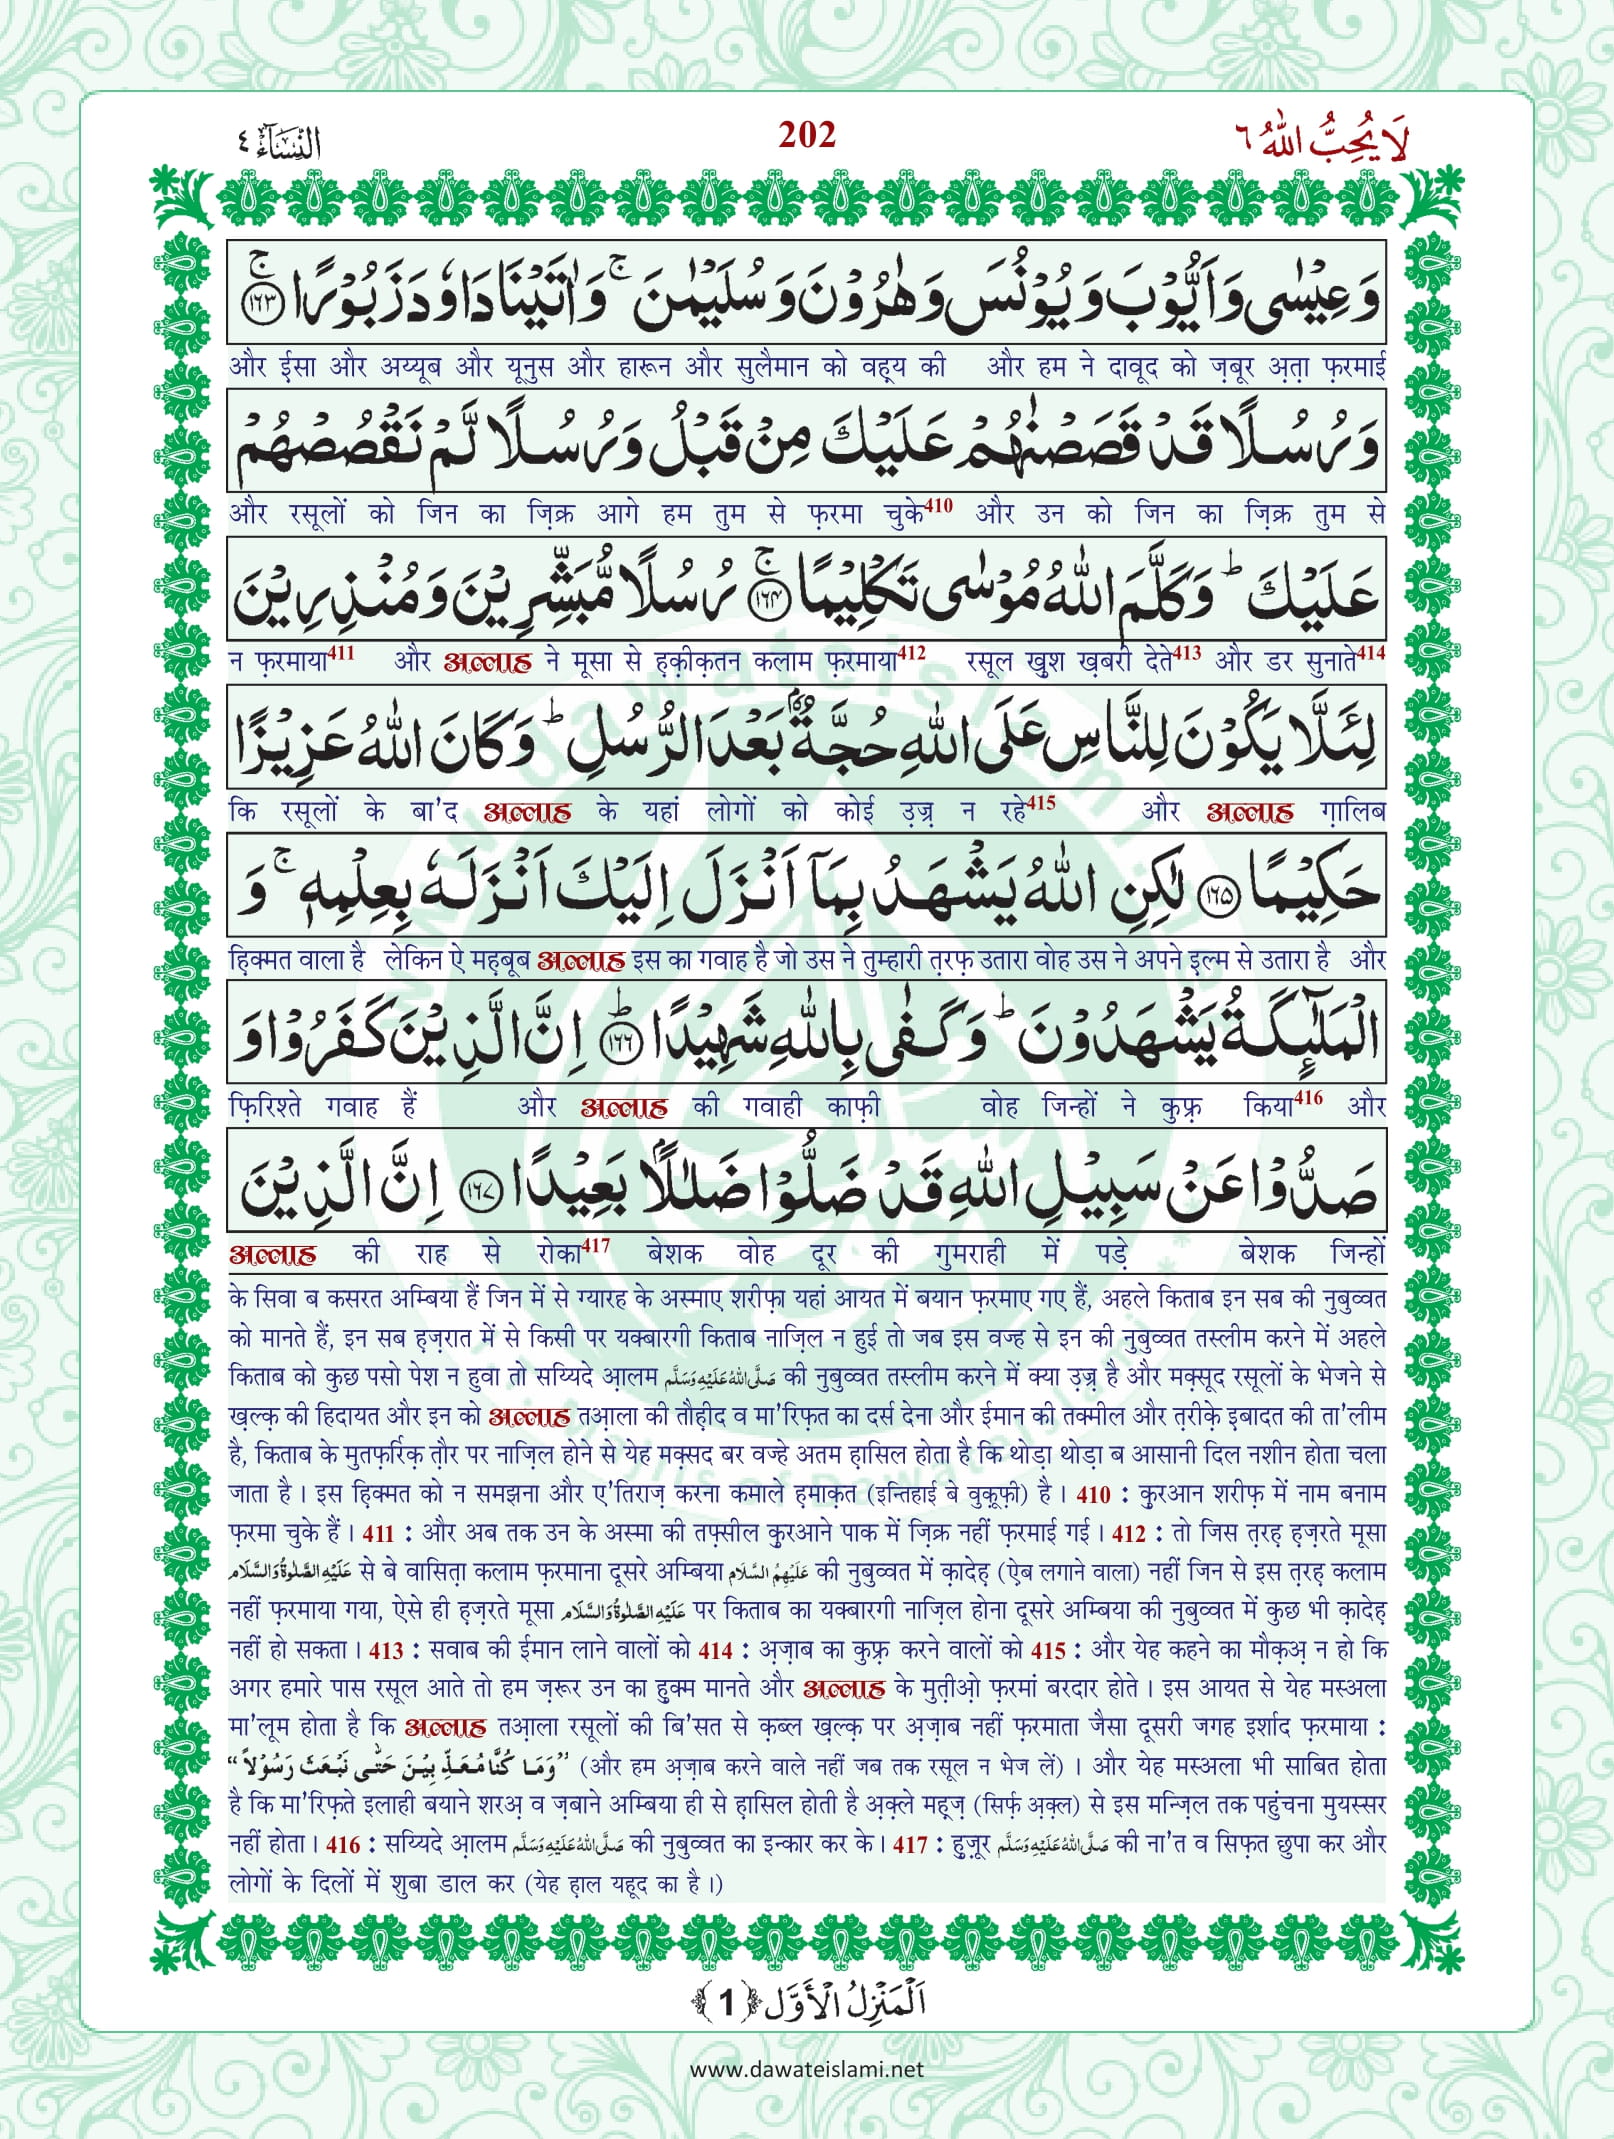 النِّسَآء ٤
202
لَا يُحِبُّ اللّٰهُ ٦
وَعِيْسٰى وَاَيُّوْبَ وَيُوْنُسَ وَهٰرُوْنَ وَسُلَيْمٰنَ ۚ وَاٰتَيْنَا دَاوٗدَ زَبُوْرًا ۚ ﴿١٦٣﴾
और ईसा और अय्यूब और यूनुस और हारून और सुलैमान को वह्‌य की और हम ने दावूद को ज़बूर अ़त़ा फ़रमाई
وَرُسُلًا قَدْ قَصَصْنٰهُمْ عَلَيْكَ مِنْ قَبْلُ وَرُسُلًا لَّمْ نَقْصُصْهُمْ
और रसूलों को जिन का ज़िक्र आगे हम तुम से फ़रमा चुके410 और उन को जिन का ज़िक्र तुम से
عَلَيْكَ ؕ وَكَلَّمَ اللّٰهُ مُوْسٰى تَكْلِيْمًا ۚ ﴿١٦٤﴾ رُسُلًا مُّبَشِّرِيْنَ وَمُنْذِرِيْنَ
न फ़रमाया411 और अल्लाह ने मूसा से ह़क़ीक़तन कलाम फ़रमाया412 रसूल खुश ख़बरी देते413 और डर सुनाते414
لِئَلَّا يَكُوْنَ لِلنَّاسِ عَلَى اللّٰهِ حُجَّةٌۢ بَعْدَ الرُّسُلِ ؕ وَكَانَ اللّٰهُ عَزِيْزًا
कि रसूलों के बा'द अल्लाह के यहां लोगों को कोई उ़ज़्र न रहे415 और अल्लाह ग़ालिब
حَكِيْمًا ﴿١٦٥﴾ لٰكِنِ اللّٰهُ يَشْهَدُ بِمَاۤ اَنْزَلَ اِلَيْكَ اَنْزَلَهٗ بِعِلْمِهٖ ۚ وَ
ह़िक्मत वाला है लेकिन ऐ मह़बूब अल्लाह इस का गवाह है जो उस ने तुम्हारी त़रफ़ उतारा वोह उस ने अपने इ़ल्म से उतारा है और
الْمَلٰٓئِكَةُ يَشْهَدُوْنَ ؕ وَكَفٰى بِاللّٰهِ شَهِيْدًا ؕ ﴿١٦٦﴾ اِنَّ الَّذِيْنَ كَفَرُوْا وَ
फ़िरिश्ते गवाह हैं और अल्लाह की गवाही काफ़ी वोह जिन्हों ने कुफ़्र किया416 और
صَدُّوْا عَنْ سَبِيْلِ اللّٰهِ قَدْ ضَلُّوْا ضَلٰلًۢا بَعِيْدًا ﴿١٦٧﴾ اِنَّ الَّذِيْنَ
अल्लाह की राह से रोका417 बेशक वोह दूर की गुमराही में पड़े बेशक जिन्हों
के सिवा ब कसरत अम्बिया हैं जिन में से ग्यारह के अस्माए शरीफ़ा यहां आयत में बयान फ़रमाए गए हैं, अहले किताब इन सब की नुबुव्वत
को मानते हैं, इन सब ह़ज़रात में से किसी पर यक्बारगी किताब नाज़िल न हुई तो जब इस वज्ह से इन की नुबुव्वत तस्लीम करने में अहले
किताब को कुछ पसो पेश न हुवा तो सय्यिदे आ़लम صَلَّى اللهُ عَلَيْهِ وَسَلَّم की नुबुव्वत तस्लीम करने में क्या उ़ज़्र है और मक़्सूद रसूलों के भेजने से
ख़ल्क़ की हिदायत और इन को अल्लाह तआ़ला की तौह़ीद व मा'रिफ़त का दर्स देना और ईमान की तक्मील और त़रीक़े इ़बादत की ता'लीम
है, किताब के मुतफ़र्रिक़ त़ौर पर नाज़िल होने से येह मक़्सद बर वज्हे अतम ह़ासिल होता है कि थोड़ा थोड़ा ब आसानी दिल नशीन होता चला
जाता है। इस ह़िक्मत को न समझना और ए'तिराज़ करना कमाले ह़माक़त (इन्तिहाई बे वुक़ूफ़ी) है। 410 : क़ुरआन शरीफ़ में नाम बनाम
फ़रमा चुके हैं। 411 : और अब तक उन के अस्मा की तफ़्सील क़ुरआने पाक में ज़िक्र नहीं फ़रमाई गई। 412 : तो जिस त़रह़ ह़ज़रते मूसा
عَلَيْهِ الصَّلٰوةُ وَالسَّلَام से बे वासित़ा कलाम फ़रमाना दूसरे अम्बिया عَلَيْهِمُ السَّلَام की नुबुव्वत में क़ादेह़ (ऐब लगाने वाला) नहीं जिन से इस त़रह़ कलाम
नहीं फ़रमाया गया, ऐसे ही ह़ज़रते मूसा عَلَيْهِ الصَّلٰوةُ وَالسَّلَام पर किताब का यक्बारगी नाज़िल होना दूसरे अम्बिया की नुबुव्वत में कुछ भी क़ादेह़
नहीं हो सकता। 413 : सवाब की ईमान लाने वालों को 414 : अ़ज़ाब का कुफ़्र करने वालों को 415 : और येह कहने का मौक़अ़ न हो कि
अगर हमारे पास रसूल आते तो हम ज़रूर उन का ह़ुक्म मानते और अल्लाह के मुत़ीओ़ फ़रमां बरदार होते। इस आयत से येह मस्अला
मा'लूम होता है कि अल्लाह तआ़ला रसूलों की बि'सत से क़ब्ल ख़ल्क़ पर अ़ज़ाब नहीं फ़रमाता जैसा दूसरी जगह इर्शाद फ़रमाया :
”وَمَا كُنَّا مُعَذِّبِيْنَ حَتّٰى نَبْعَثَ رَسُوْلًا“ (और हम अ़ज़ाब करने वाले नहीं जब तक रसूल न भेज लें)। और येह मस्अला भी साबित होता
है कि मा'रिफ़ते इलाही बयाने शरअ़ व ज़बाने अम्बिया ही से ह़ासिल होती है अ़क़्ले मह़्ज़ (सिर्फ़ अ़क़्ल) से इस मन्ज़िल तक पहुंचना मुयस्सर
नहीं होता। 416 : सय्यिदे आ़लम صَلَّى اللهُ عَلَيْهِ وَسَلَّم की नुबुव्वत का इन्कार कर के। 417 : ह़ुज़ूर صَلَّى اللهُ عَلَيْهِ وَسَلَّم की ना'त व सिफ़त छुपा कर और
लोगों के दिलों में शुबा डाल कर (येह ह़ाल यहूद का है।)
اَلْمَنْزِلُ الْاَوَّل ﴿1﴾
www.dawateislami.net